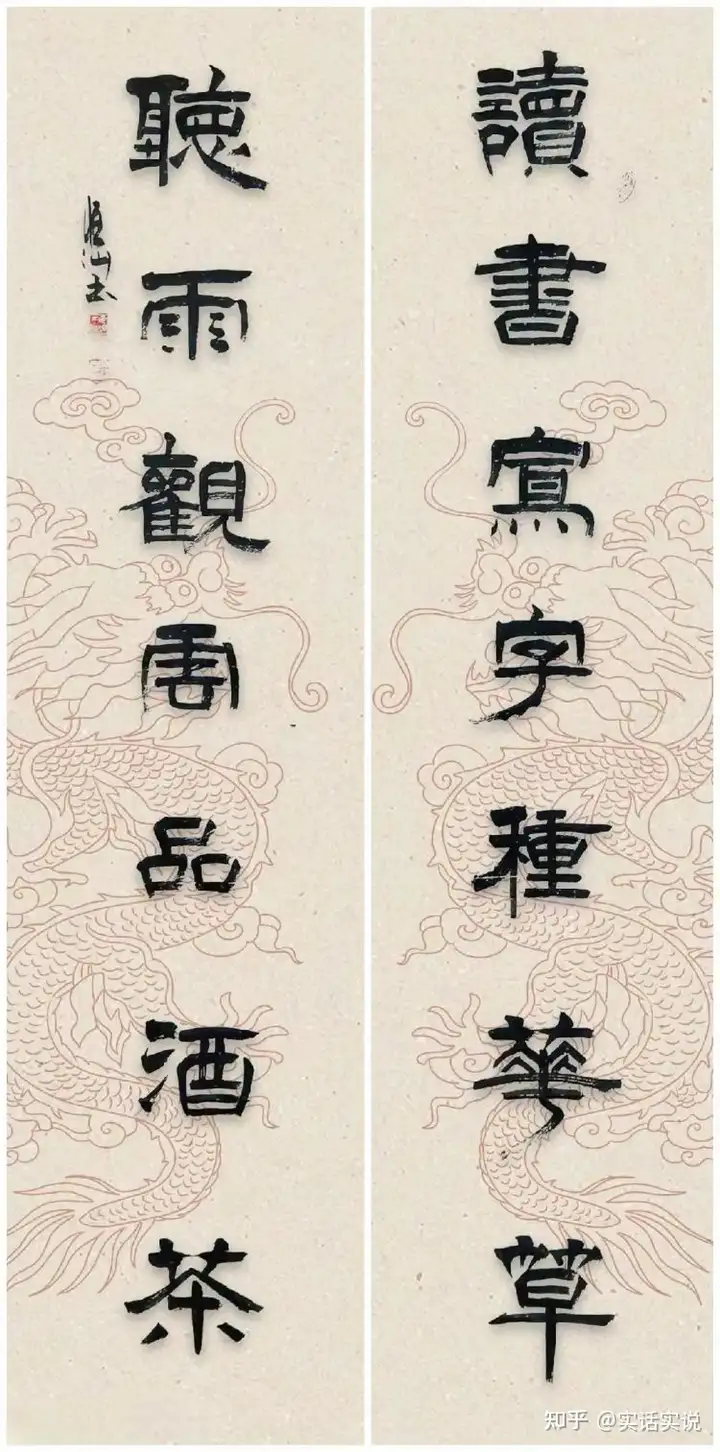 讀書寫字種華草
聽雨觀雲品酒茶
山书
知乎 @实话实说